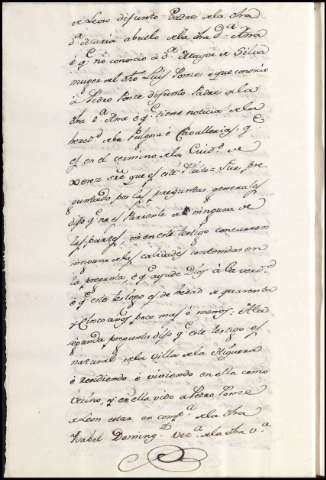 de Leon difunto Padre de la dha
Dª Maria abuelo de la dha Dª Ana
é qe no conocio a Dª de Silva
muger del dho Luis Ponce é que conocio
à Pedro Ponce difunto Padre de la
dha Dª Ana é qe tiene noticia de la
heredª de la é Cavallerias qe
es en el termino de la Ciudª de
Xerez este testº fue pre
guntado por las preguntas generales
dijo qe no es Pariente de ninguna de
las partes, ni en este testigo concurren
ninguna de las calidades contenidas en
la pregunta, é qe ayude Dios à la verdª
é qe este testigo es de hedad de quarenta
y cinco años poco mas ó menos, A la
segunda pregunta dijo qe este testigo es
natural de la Villa de la Higuera
é residiendo é viviendo en ella como
vecino, y en ella vido à Pedro Ponce
de Leon estar en compª de la dha
Isabel Doming vecª de la dha Vª